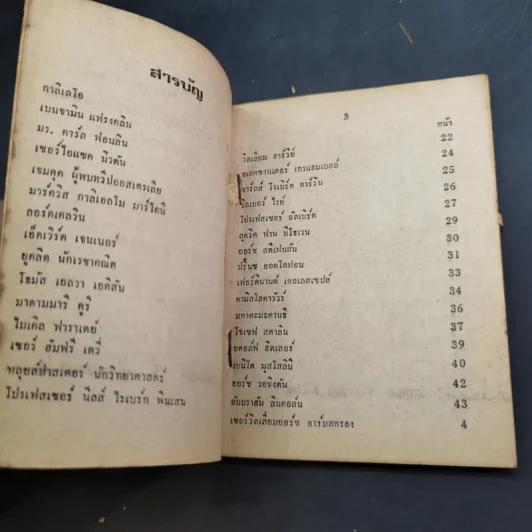 สารบัญ
กาลิเลโอ
เบนจามิน แฟรงคลิน
มร. คาร์ล ฟอนลิน
เซอร์ไอแซค นิวตัน
เจมคุค ผู้พบทวีปออสเตรเลีย
มาร์ควิส กาลิเอลโม มาร์โคนี
ลอร์ดเคลวิน
เอ็ดเวิร์ด เจนเนอร์
ยูคลิด นักเรขาคณิต
โธมัส เอลวา เอดิสัน
มาดามมารี คูรี
ไมเคิล ฟาราเดย์
เซอร์ ฮัมฟรี เดวี่
หลุยส์ปาสเตอร์ นักวิทยาศาสตร์
โปรเฟสเซอร์ นีลส์ ไรเบร์ก ฟินเสน
3
หน้า
วิลเลียม ฮาร์วีย์ 22
อเลคซานเดอร์ เกรแฮมเบลล์ 24
ชาร์ลส์ โรเบิร์ต ดาร์วิน 25
วิลเบอร์ ไรท์ 26
โปรเฟสเซอร์ อัลเบิร์ต 27
ลุดวิค ฟาน บีโธเวน 29
ยอร์ช สตีเฟนสัน 30
ปริ๊นซ ออตโตฟอน 31
เฟอร์ดินานด์ เดอเลสเซปส์ 33
คามิลโลคาวัวร์ 34
มหาตะมะคานธี 36
โจเซฟ สตาลิน 37
อดอล์ฟ ฮิตเลอร์ 39
เบนิโต มุสโสลินี 40
ยอร์ช วอชิงตัน 42
อับบราฮัม ลินคอล์น 43
เซอร์วิลเลี่ยมยอร์ช อาร์มสตรอง 4